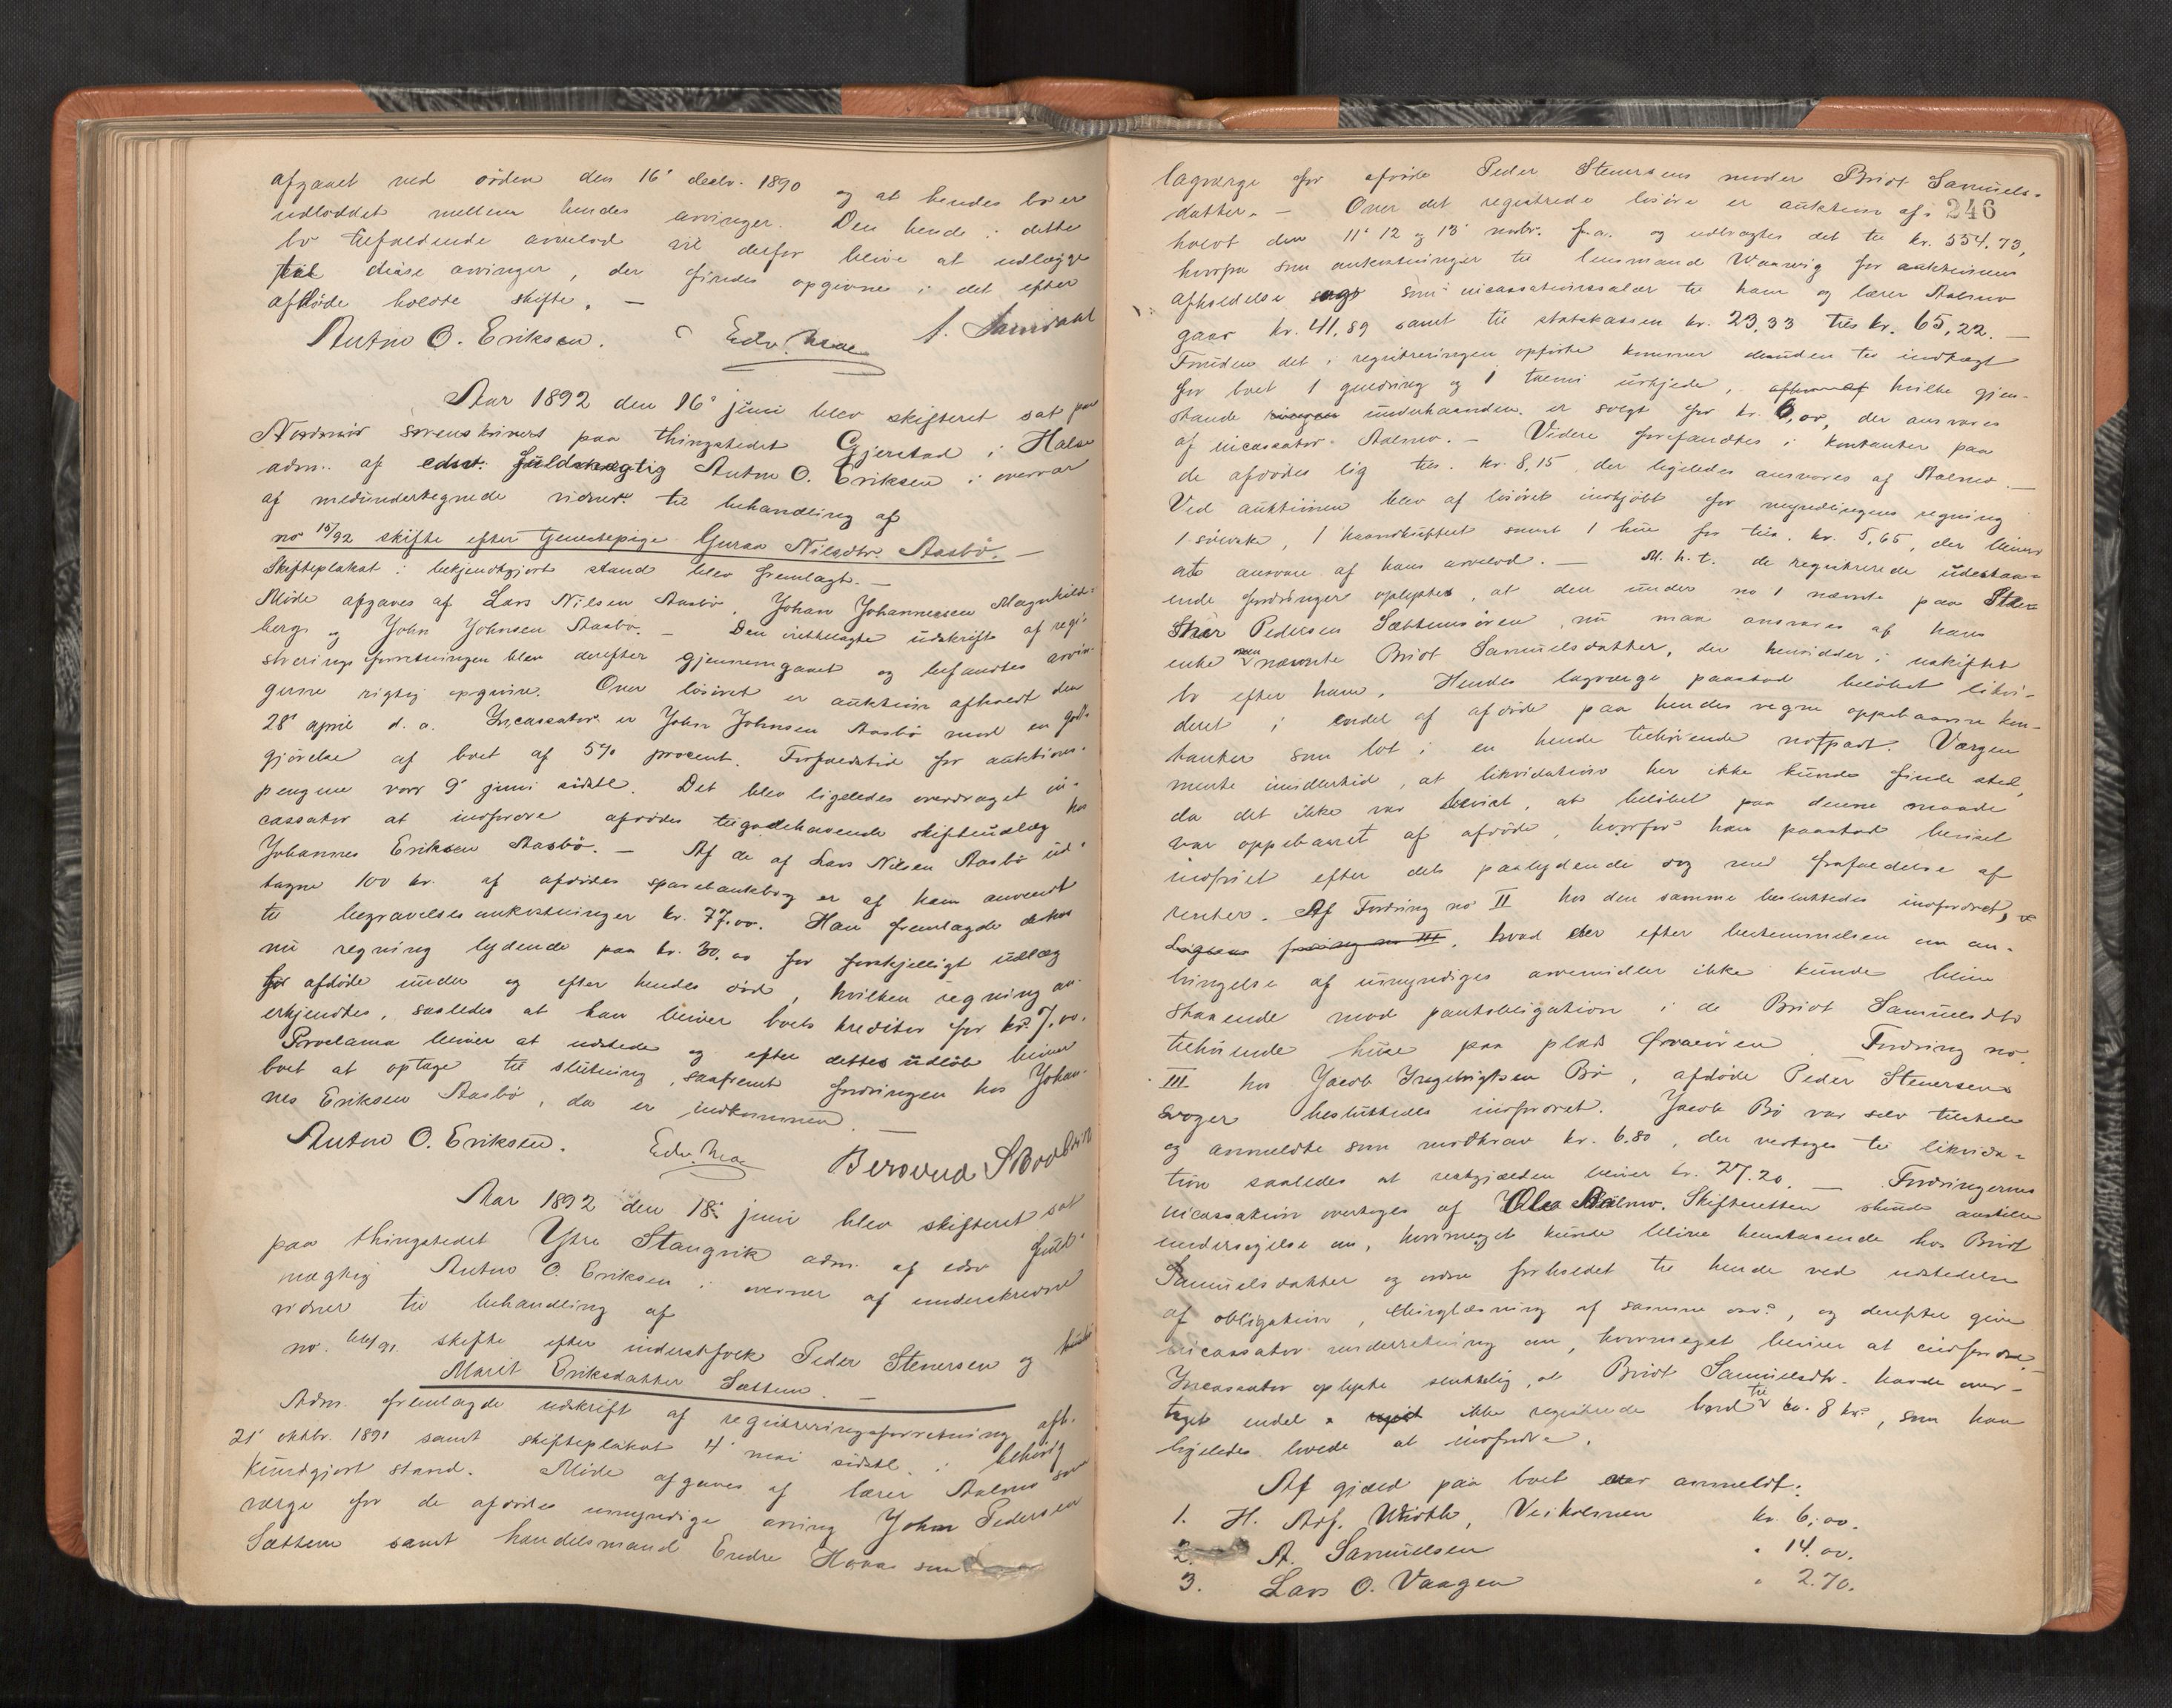 afgaaet ved døden den 16' decbr. 1890 og at hendes bo er
udloddet mellem hendes arvinger. Den hende i dette
bo tilfaldende arvelod vil derfor blive at udlægge
til disse arvinger, der findes opgivne i det efter
afdøde holdte skifte. —
Anton O. Eriksen. Edv. Moe
Aar 1892 den 16' juni blev skifteret sat paa
Nordmør sorenskriveri paa thingstedet Gjerstad i Halse
adm. af edsv. fuldmægtig Anton O. Eriksen i overvær
af medundertegnede vidner til behandling af
no 15/92 skifte efter tjenestepige Guraa Nilsdtr. Aasbø. —
Skifteplakat i bekjendtgjort stand blev fremlagt. —
Møde afgaves af Lars Nilsen Aasbø, Johan Johannessen Magnhild-
berg og John Johnsen Aasbø. — Den iretlelagte udskrift af regi-
streringsforretningen blev derefter gjennemgaaet og befandtes arvin-
gerne rigtig opgivne. Over løsøret er auktion afholdt den
28' april d. a. Incassator er John Johnsen Aasbø mod en godt-
gjørelse af boet af 5% procent. Forfaldstid for auktions-
pengene var 9' juni sidstl. Det blev ligeledes overdraget in-
cassator at indfordre afdødes tilgodehavende skifteudlæg hos
Johannes Eriksen Aasbø. — Af de af Lars Nilsen Aasbø ud-
tagne 100 kr. af afdødes sparebankbog er af ham anvendt
til begravelsesomkostninger kr. 77.00. Han fremlagde derhos
nu regning lydende paa kr. 30.00 for forskjelligt udlæg
for afdøde under og efter hendes død, hvilken regning an-
erkjendtes, saaledes at han bliver boets kreditor for kr. 7.00.
Proclama bliver at udstede og efter dettes udløb bliver
boet at optage til slutning, saafremt fordringen hos Johan-
nes Eriksen Aasbø, da er indkommen. —
Anton O. Eriksen. Edv. Moe
Aar 1892 den 18' juni blev skifteret sat
paa thingstedet Ytre Stangvik adm. af edsv. fuld-
mægtig Anton O. Eriksen i overvær af underskrevne
vidner til behandling af
skifte efter inderstfolk Peder Stenersen og
Marit Eriksdatter Sættem. —
Adm. fremlagde udskrift af registreringsforretning afh.
21' oktbr. 1891 samt skifteplakat 4' mai sidstl. i behørig
kundgjort stand. Møde afgaves af lærer Aalmo som
værge for de afdødes umyndige arving John Pedersen
Sættem samt handelsmand Endre Haaa som
246
lagværge for afdøde Peder Stenersens moder Briot Samuels-
datter. — Over det registrede løsøre er auktion af-
holdt den 11' 12 og 13' novbr. f. a. og udbragtes det til kr. 554.73,
hvorpaa som omkostninger til lensmand Waarvig for auktionens
afholdelse som incassationssalær til ham og lærer Aalmo
gaar kr. 41,89 samt til statskassen kr. 23,33 tils kr. 65,22. —
Foruden det i registreringen opførte kommer desuden til indtægt
for boet 1 guldring og 1 urkjede, hvilke gjen-
stande underhaanden er solgt for kr. 6,00, der ansvares
af incassator Aalmo. — Videre forefandtes i kontanter paa
de afdødes lig tils. kr. 8,15 der ligeledes ansvares af Aalmo. —
Ved auktionen blev af løsøret indkjøbt for myndlingens regning
1 , 1 samt 1 hue for tils. kr. 5,65, der bliver
at ansvare af hans arvelod. — M. h. t. de registrerede udestaa-
ende fordringer oplystes, at den under no 1 nævnte paa
Pedersen Sættemsøren, nu maa ansvares af hans
enke nævnte Briot Samuelsdatter, der hensidder i uskiftet
bo efter ham. Hendes lagværge paastod beløbet likvi-
deret i endel af afdøde paa hendes vegne oppebaarne kon-
tanter som lot i en hende tilhørende notpart. Værgen
mente imidlertid, at likvidation her ikke kunde finde sted,
da det ikke var bevist, at beløbet paa denne maade
var oppebaaret af afdøde, hvorfor han paastod beviset
indfriet efter dets paalydende dog med frafaldelse af
renter. Af Fordring no II hos den samme besluttedes indfordret,
hvad der efter bestemmelsen om an-
bringelse af umyndiges arvemidler ikke kunde blive
staaende mod pantobligation i de Briot Samuelsdtr
tilhørende huse paa plads Ørvaøren. Fordring no
III hos Jacob Ingebrigtsen Bø, afdøde Peder Stenersens
svoger besluttedes indfordret. Jacob Bø var selv tilstede
og anmeldte som modkrav kr. 6.80, der vertoges til likvida-
tion saaledes at restgjælden bliver kr. 27.20. — Fordringernes
incassation overtoges af Ole Aalmo. Skifteretten skulde anstille
undersøgelse om, hvormeget kunde blive henstaaende hos Briot
Samuelsdatter og ordne forholdet til hende ved udstedelse
af obligation, thinglæsning af samme osv., og derefter give
incassator underretning om, hvormeget bliver at indfordre.
Incassator oplyste sluttelig, at Briot Samuelsdtr. havde over-
taget endel ikke registrerede bord til ca. 8 kr., som han
ligeledes lovede at indfordre.
Af gjæld paa boet var anmeldt:
1. H. Adf. Wirth, Veiholmen kr. 6,00.
2. A. Samuelsen " 14.00.
3. Lars O. Vaagen " 2.70.